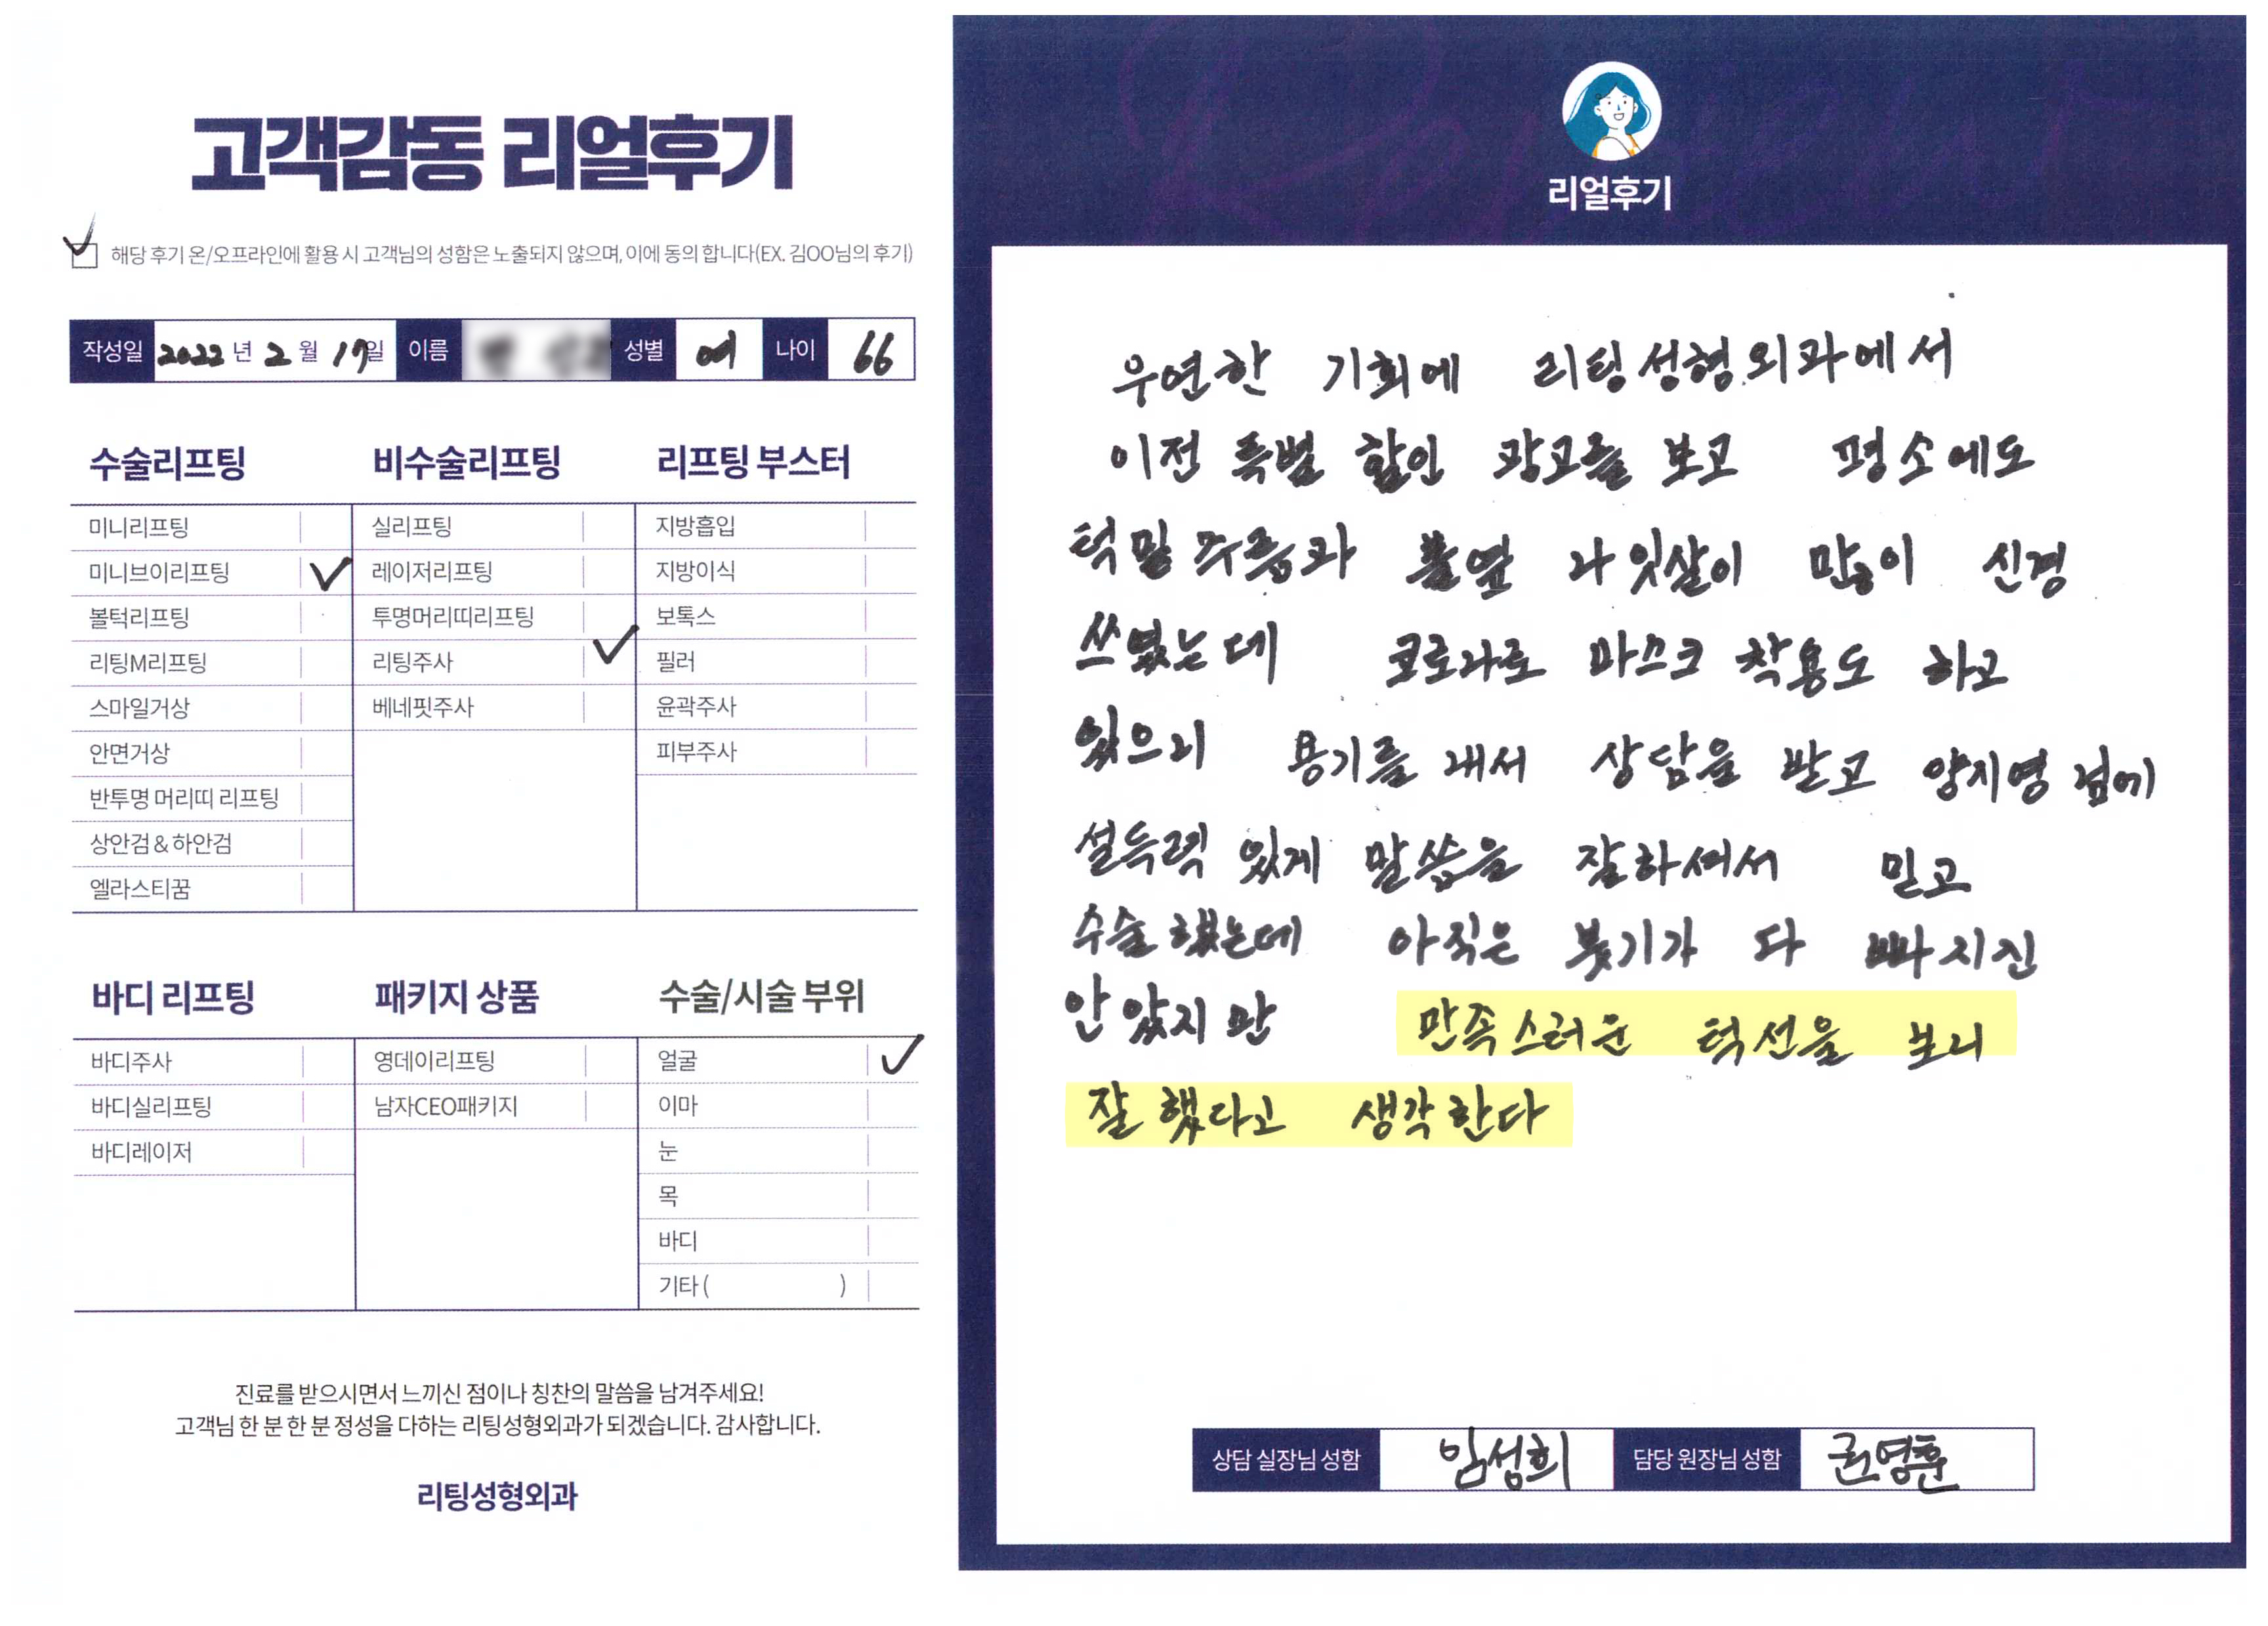 고객감동 리얼후기
해당 후기 온/오프라인에 활용 시 고객님의 성함은 노출되지 않으며, 이에 동의 합니다(EX. 김OO님의 후기)
작성일 2022년 2월 17일 이름 성별 여 나이 66
수술리프팅
미니리프팅
미니브이리프팅
볼턱리프팅
리팅M리프팅
스마일거상
안면거상
반투명 머리띠 리프팅
상안검 & 하안검
엘라스티꿈
비수술리프팅
실리프팅
레이저리프팅
투명머리띠리프팅
리팅주사
베네핏주사
리프팅 부스터
지방흡입
지방이식
보톡스
필러
윤곽주사
피부주사
바디 리프팅
바디주사
바디실리프팅
바디레이저
패키지 상품
영데이리프팅
남자CEO패키지
수술/시술 부위
얼굴
이마
눈
목
바디
기타 ( )
진료를 받으시면서 느끼신 점이나 칭찬의 말씀을 남겨주세요!
고객님 한 분 한 분 정성을 다하는 리팅성형외과가 되겠습니다. 감사합니다.
리팅성형외과
리얼후기
우연한 기회에 리팅성형외과에서
이전 특별 할인 광고를 보고 평소에도
턱밑 주름과 볼옆 나잇살이 많이 신경
쓰였는데 코로나로 마스크 착용도 하고
있으니 용기를 내서 상담을 받고 양지영
설득력 있게 말씀을 잘하셔서 믿고
수술했는데 아직은 붓기가 다 빠지진
안 았지만 만족스러운 턱선을 보니
잘 했다고 생각한다
상담 실장님 성함 임성희 담당 원장님 성함 권영훈